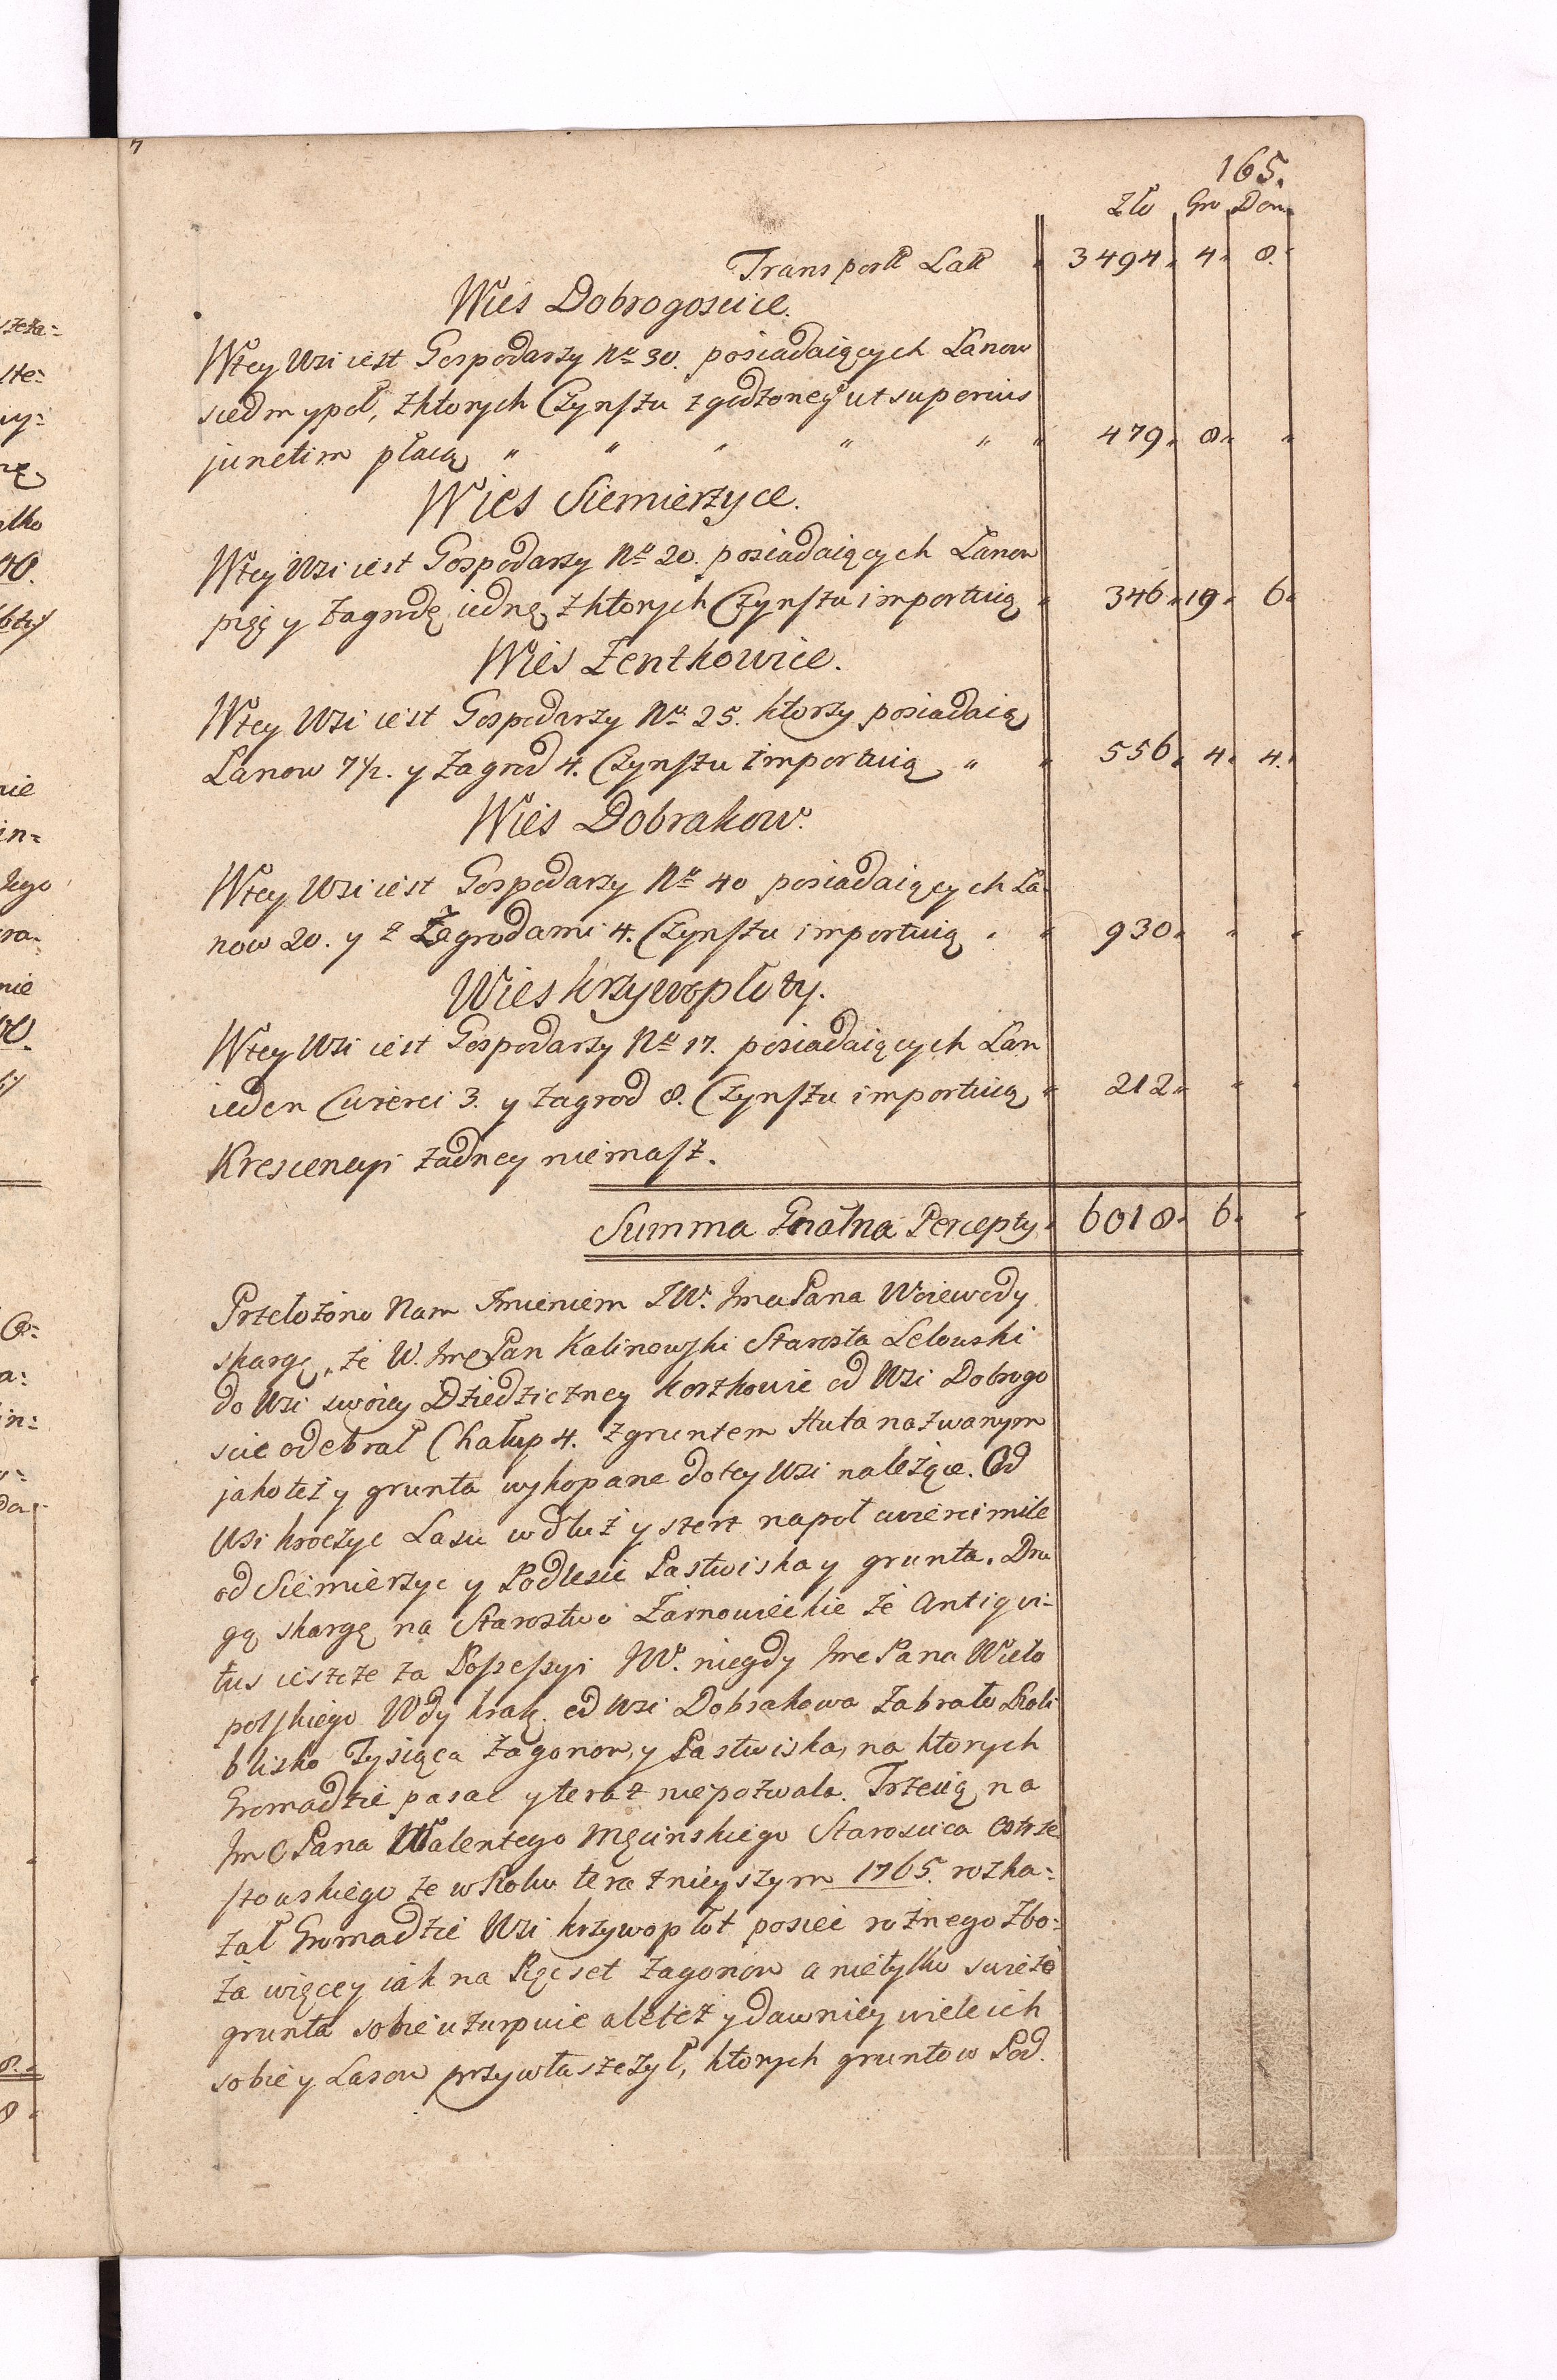 165.
Zło Gro Den.
Transportt Latt 3494. 4. 8.
Wies Dobrogoscice.
Wtey Wsi iest Gospodarzy No 30. posiadaiących Łanow
siedm ypoł, zktorych Czynszu zgodzonego ut superius
junctim płacą " " " " " " 479. 8. "
Wies Siemierzyce.
Wtey Wsi iest Gospodarzy No 20. posiadaiących Łanow
pięć y Zagrodę iednę zktorych Czynszu importuią " 346. 19. 6.
Wies Zentkowice.
Wtey Wsi iest Gospodarzy No 25. ktorzy posiadaią
Łanow 7 1/2. y Zagrod 4. Czynszu importuią " " 556. 4. 4.
Wies Dobrakow.
Wtey Wsi iest Gospodarzy No 40 posiadaiących Ła-
now 20. y z Zagrodami 4. Czynszu importuią . " 930. " "
Wies Krzywopłoty.
Wtey Wsi iest Gospodarzy No 17. posiadaiących Łan
ieden Cwierci 3. y Zagrod 8. Czynszu importuią " 212. " "
Krescencyi żadney niemasz.
Summa Gralna Percepty. 6018. 6. "
Przełożono Nam Imieniem JW. Jmci Pana Woiewody
skargę, że W. Jmc Pan Kalinowski Starosta Lelowski
do Wsi swoiey Dziedziczney Korzkowie od Wsi Dobrogo
scic odebrał Chałup 4. zgruntem Huta nazwanym
jakoteż y grunta wykopane dotey Wsi należące. Od
Wsi Kroczyc Lasu wdłuż y szerz napoł cwierci mile
od Siemierzyc y Podlesie Pastwiska y grunta. Dru
gą skargę na Starostwo Żarnowieckie że Antiqui-
tus ieszcze za Possessyi JW. niegdy Jmc Pana Wielo
polskiego Wdy Krak. od Wsi Dobrakowa zabrało Roli
blisko Tysiąca Zagonow, y Pastwiska, na ktorych
Gromadzie pasac yteraz niepozwala. Trzecią na
Jmc Pana Walentego Męcinskiego Staroscica Ostrze
szowskiego że wRoku terazniejszym 1765. rozka=
zał Gromadzie Wsi Krzywopłot posiec rożnego Zbo=
ża więcey iak na Pięcset Zagonow a nietylko swieżo
grunta sobie uzurpuie aleteż ydawniey wieleich
sobie y Lasow przywłaszczył, ktorych gruntow Pod.